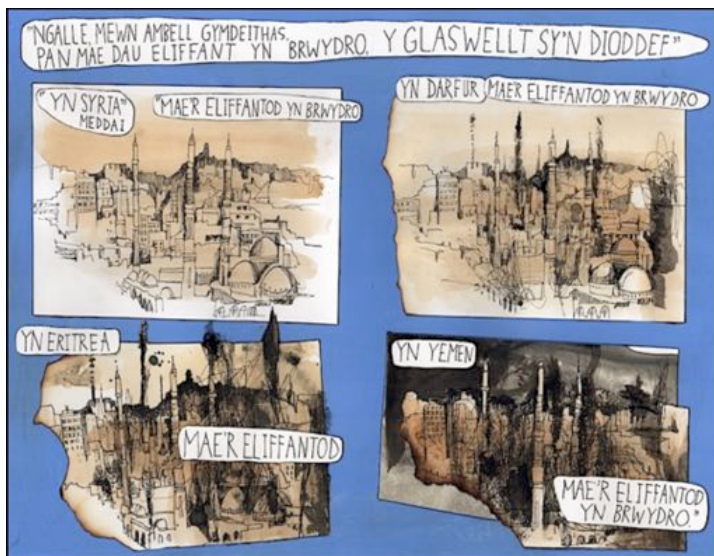 "NGALLE, MEWN AMBELL GYMDEITHAS,
PAN MAE DAU ELIFFANT YN BRWYDRO, Y GLASWELLT SY'N DIODDEF"
"YN SYRIA"
MEDDAI
"MAE'R ELIFFANTOD YN BRWYDRO
YN DARFUR
MAE'R ELIFFANTOD YN BRWYDRO
YN ERITREA
MAE'R ELIFFANTOD
YN YEMEN
MAE'R ELIFFANTOD
YN BRWYDRO."